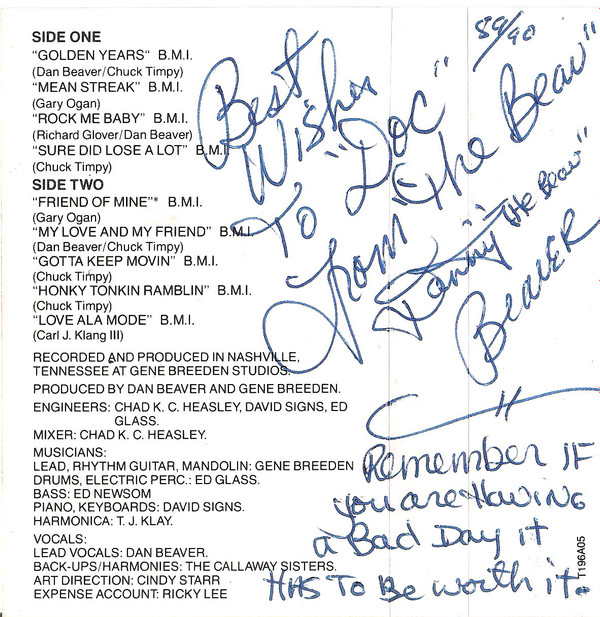 SIDE ONE
"GOLDEN YEARS" B.M.I.
(Dan Beaver/Chuck Timpy)
"MEAN STREAK" B.M.I.
(Gary Ogan)
"ROCK ME BABY" B.M.I.
(Richard Glover/Dan Beaver)
"SURE DID LOSE A LOT" B.M.I.
(Chuck Timpy)
SIDE TWO
"FRIEND OF MINE"* B.M.I.
(Gary Ogan)
"MY LOVE AND MY FRIEND" B.M.I.
(Dan Beaver/Chuck Timpy)
"GOTTA KEEP MOVIN" B.M.I.
(Chuck Timpy)
"HONKY TONKIN RAMBLIN" B.M.I.
(Chuck Timpy)
"LOVE ALA MODE" B.M.I.
(Carl J. Klang III)
RECORDED AND PRODUCED IN NASHVILLE,
TENNESSEE AT GENE BREEDEN STUDIOS.
PRODUCED BY DAN BEAVER AND GENE BREEDEN.
ENGINEERS: CHAD K. C. HEASLEY, DAVID SIGNS, ED
GLASS.
MIXER: CHAD K. C. HEASLEY.
MUSICIANS:
LEAD, RHYTHM GUITAR, MANDOLIN: GENE BREEDEN
DRUMS, ELECTRIC PERC.: ED GLASS.
BASS: ED NEWSOM
PIANO, KEYBOARDS: DAVID SIGNS.
HARMONICA: T. J. KLAY.
VOCALS:
LEAD VOCALS: DAN BEAVER.
BACK-UPS/HARMONIES: THE CALLAWAY SISTERS.
ART DIRECTION: CINDY STARR
EXPENSE ACCOUNT: RICKY LEE
89/90
Best
Wishes
To "Doc"
From "The Beav"
Danny "The Beav"
BEAVER
Remember IF
you are Having
a Bad Day it
HAS To Be worth it.
T196A05